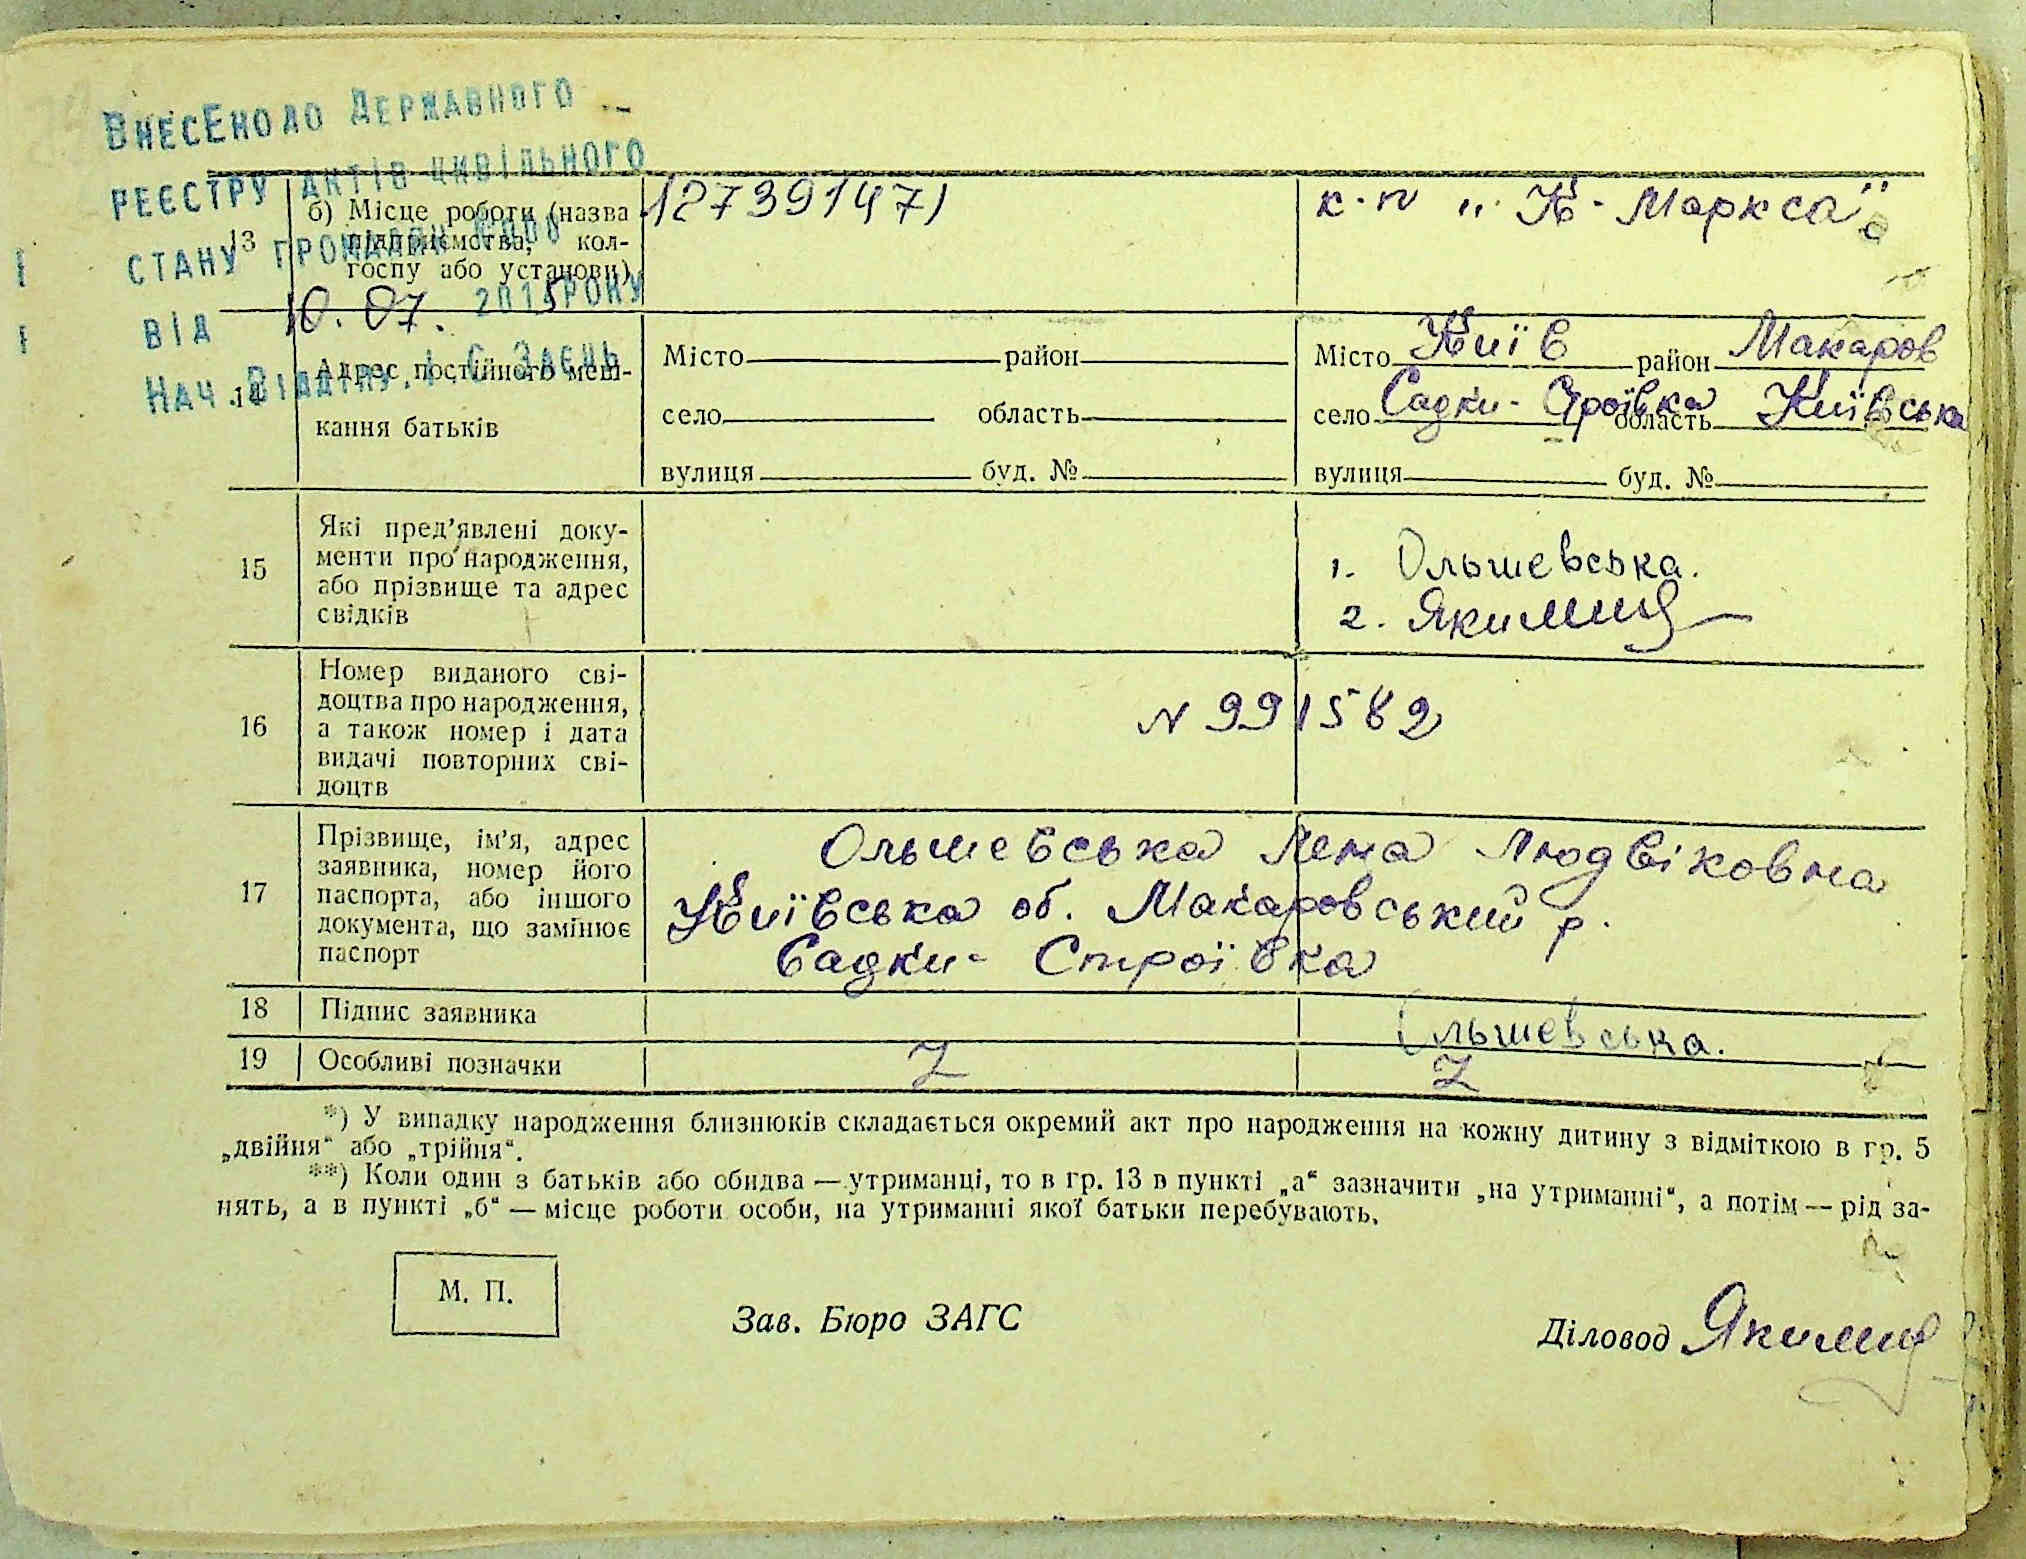 Внесено до Державного
реєстру актів цивільного
стану громадян
від 10.07. 2015 року
Нач. відділу І.С. Заєць
13 б) Місце роботи (назва підприємства, колгоспу або установи) 127391471 к-п „К-Маркса"
14 Адрес постійного меш-
кання батьків
Місто район Місто Київ район Макаров
село область село Садки-Строївка область Київська
вулиця буд. № вулиця буд. №
15 Які пред'явлені доку-
менти про народження,
або прізвище та адрес
свідків
1. Ольшевська.
2. Якимец
16 Номер виданого сві-
доцтва про народження,
а також номер і дата
видачі повторних сві-
доцтв
N 991582
17 Прізвище, ім'я, адрес
заявника, номер його
паспорта, або іншого
документа, що замінює
паспорт
Ольшевська Лена Людвіковна
Київська об. Макаровський р.
Садки- Строївка
18 Підпис заявника Ольшевська.
19 Особливі позначки Z Z
*) У випадку народження близнюків складається окремий акт про народження на кожну дитину з відміткою в гр. 5
„двійня“ або „трійня“.
**) Коли один з батьків або обидва — утриманці, то в гр. 13 в пункті „а“ зазначити „на утриманні“, а потім — рід за-
нять, а в пункті „б“ — місце роботи особи, на утриманні якої батьки перебувають.
М. П.
Зав. Бюро ЗАГС
Діловод Якимец